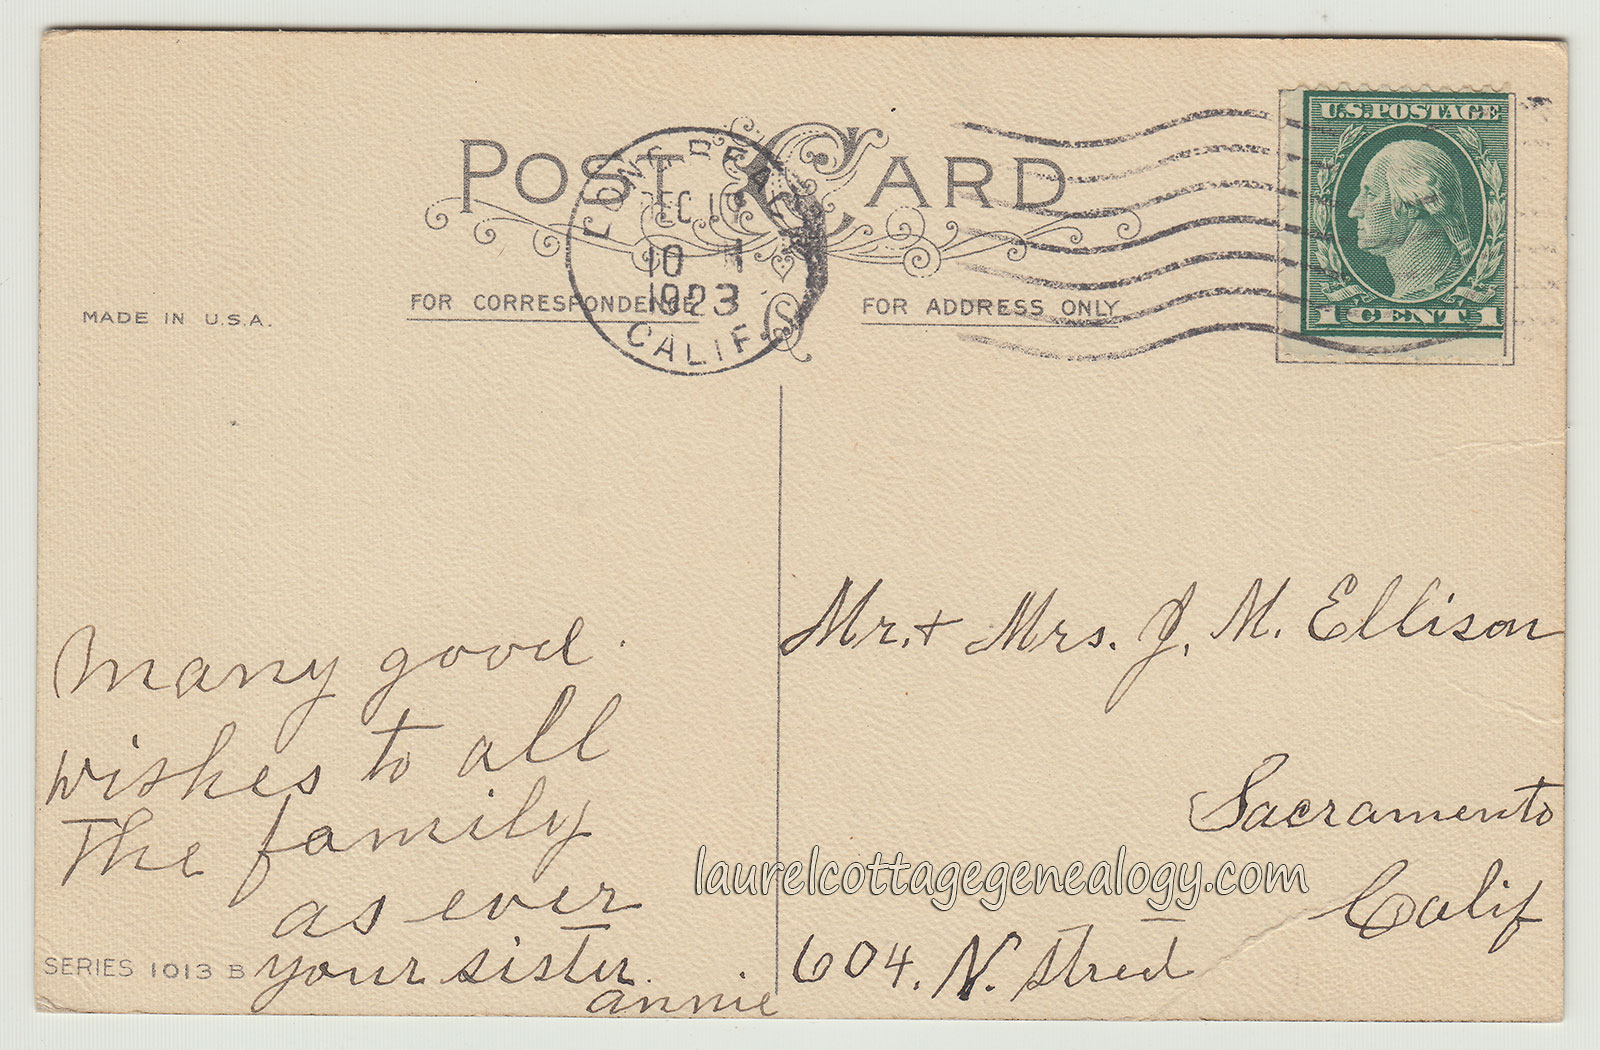 POST CARD
LONG BEACH
10
1923
CALIF.
U.S. POSTAGE
1 CENT 1
MADE IN U.S.A.
FOR CORRESPONDENCE
FOR ADDRESS ONLY
Many good
wishes to all
The family
as ever
your sister
annie
SERIES 1013 B
Mr. + Mrs. J. M. Ellison
Sacramento
Calif
604. N. Street
laurelcottagegenealogy.com